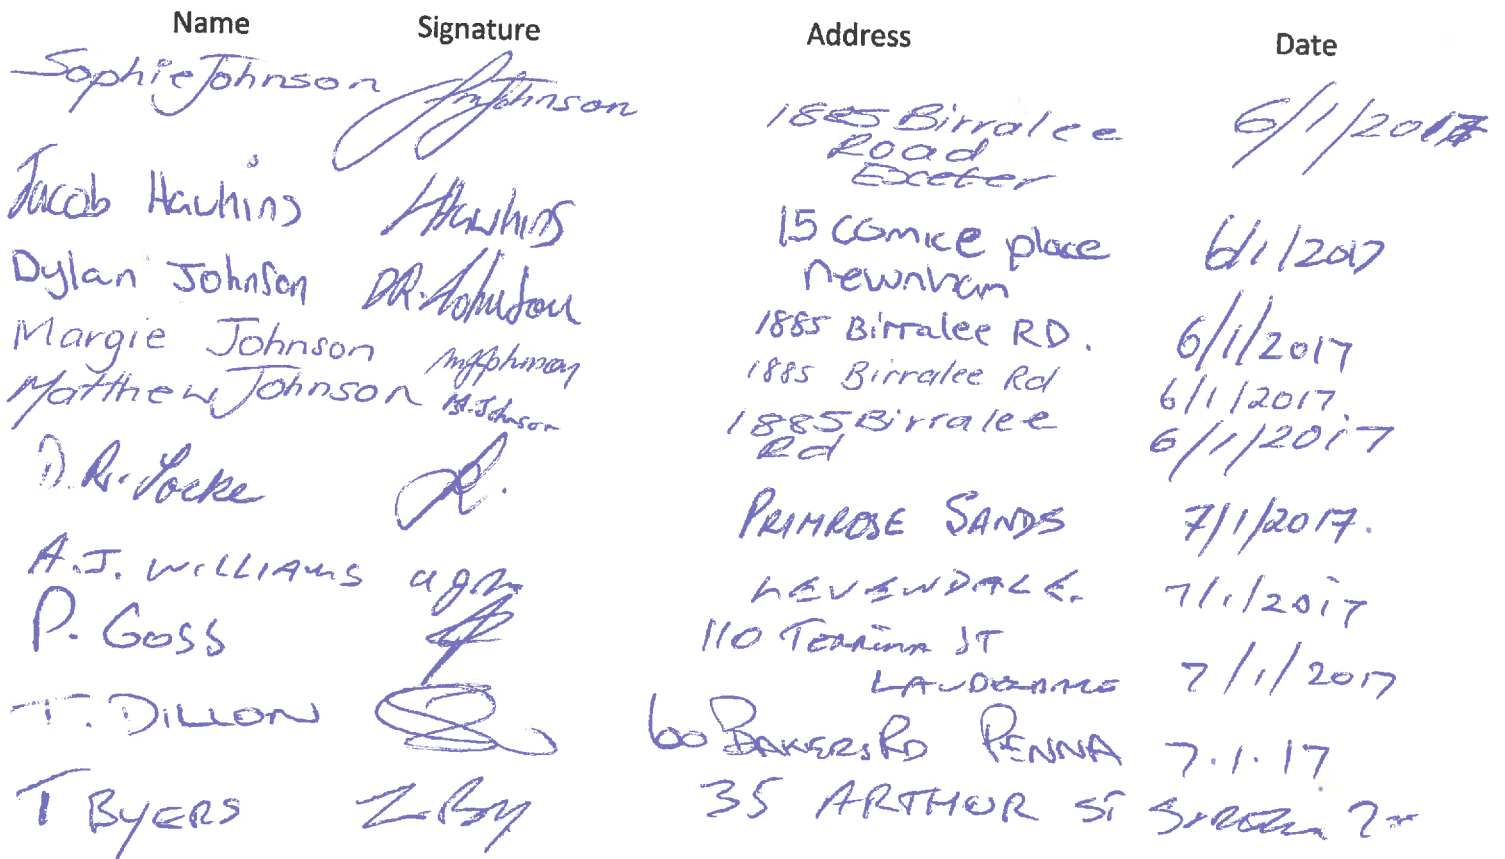 Name Signature Address Date
Sophie Johnson SmJohnson 1885 Birralee Road Exeter 6/1/2017
Jacob Hawkins JHawkins 15 comice place newnham 6/1/2017
Dylan Johnson DR. Johnson 1885 Birralee RD. 6/1/2017
Margie Johnson mjohnson 1885 Birralee Rd 6/1/2017
Matthew Johnson M.Johnson 1885 Birralee Rd 6/1/2017
D.R. Locke PRIMROSE SANDS 7/1/2017.
A.J. WILLIAMS LEVENDALE. 7/1/2017
P. GOSS 110 ST LAUDERDALE 7/1/2017
T. DILLON 60 BAKERS RD PENNA 7.1.17
T BYERS 35 ARTHUR ST